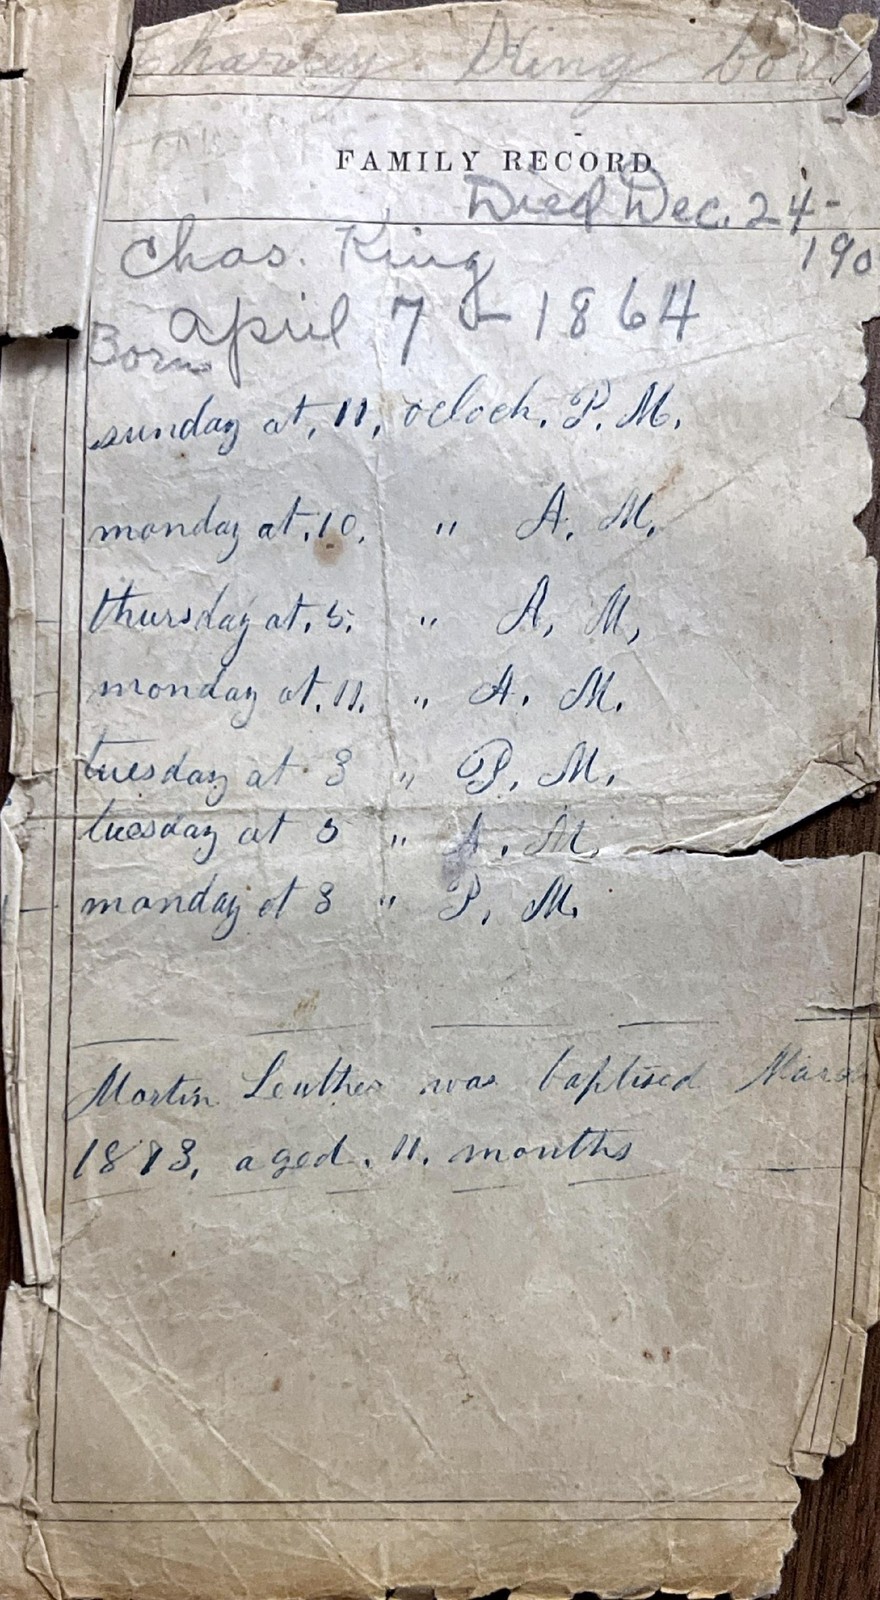 Charley King born
FAMILY RECORD
Died Dec. 24-
190
Chas. King
Born April 7 - 1864
sunday at, 11, oclock. P. M.
monday at, 10, " A. M.
thursday at, 5, " A, M,
monday at, 11, " A. M.
tuesday at 3 " P. M.
tuesday at 5 " A. M.
monday at 3 " P. M.
Martin Leuther was baptised March
1873, aged, 11, months